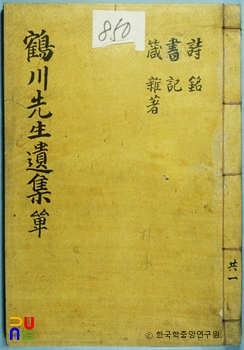 850
鶴川先生遺集 單
詩 銘
書 記
箴 雜著
共一
© 한국학중앙연구원